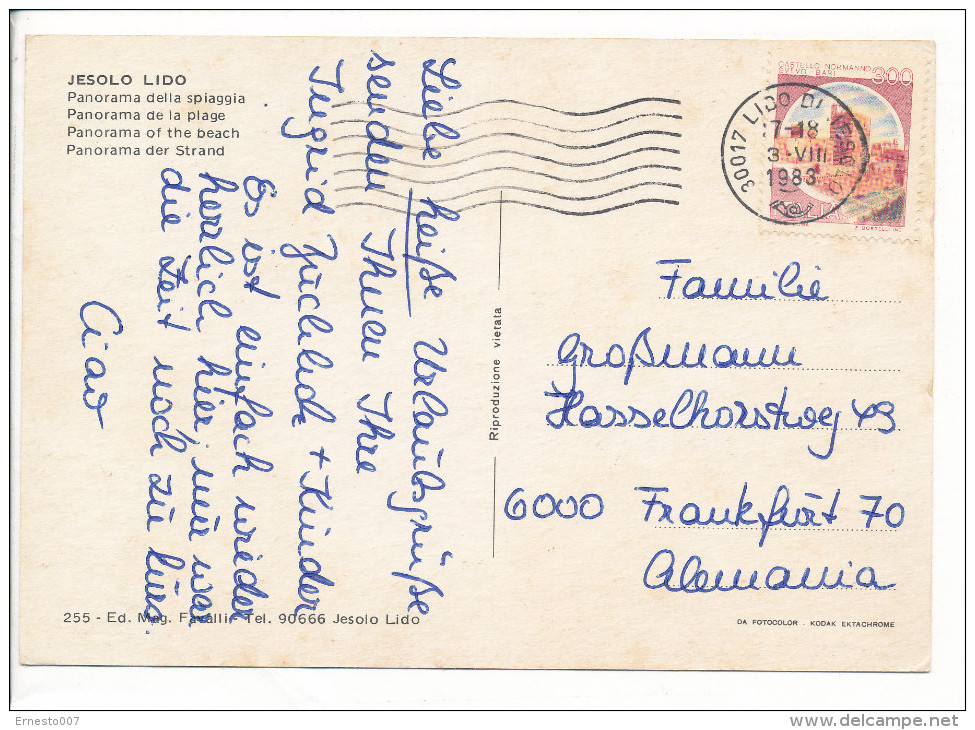 JESOLO LIDO
Panorama della spiaggia
Panorama de la plage
Panorama of the beach
Panorama der Strand
Liebe heiße Urlaubsgrüße
senden Ihnen Ihre
Ingrid + Kinder
Es ist einfach wieder
herrlich hier, nur war
die Zeit noch zu kurz.
Ciao
Riproduzione vietata
CASTELLO NORMANNO
SVEVO BARI
300
30017 LIDO DI JESOLO
17-18
3-VIII
1983
ITALIA
Familie
Großmann
Hasselhorstweg 49
6000 Frankfurt 70
Alemania
255 - Ed. Mag. Favalli - Tel. 90666 Jesolo Lido
DA FOTOCOLOR - KODAK EKTACHROME
Ernesto007
delcampe.net